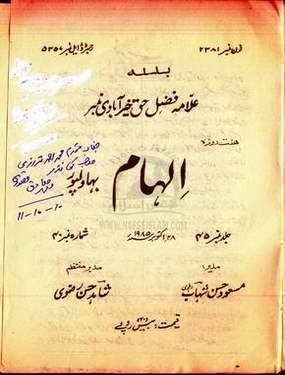 فون نمبر ۲۳۸۱
رجسٹرڈ ایل نمبر ۵۳۵۷
بسلسلہ
علامہ فضل حق خیرآبادی نمبر
ہفت روزہ
الہام
بہاولپور
۱۱-۱۰-۱۰
جلد نمبر ۴۵
۲۸ اکتوبر ۱۹۸۵ء
شمارہ نمبر ۴۰
مدیر:
مسعود حسن شہاب
مدیر منتظم
شاہد حسن رضوی
قیمت: بیس روپے